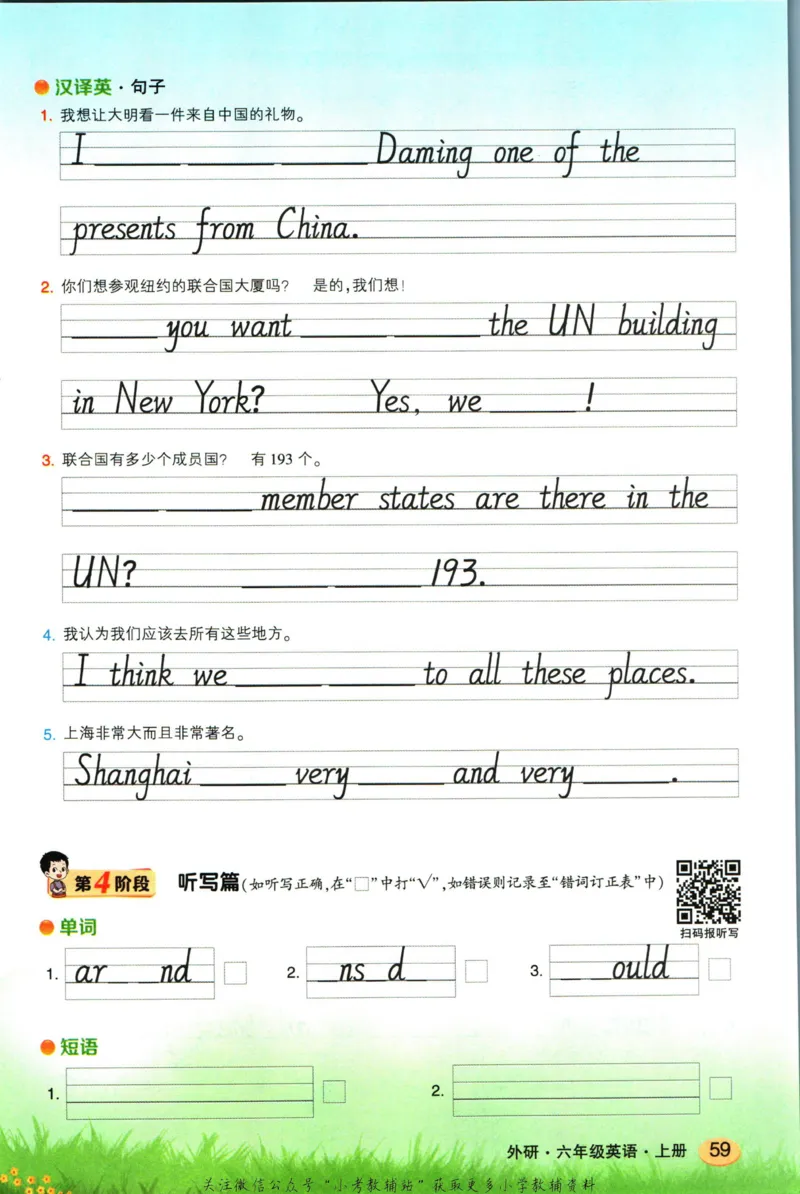 汉译英·句子
1. 我想让大明看一件来自中国的礼物。
I ______ ______ ______ Daming one of the
presents from China.
2. 你们想参观纽约的联合国大厦吗? 是的,我们想!
______ you want ______ ______ the UN building
in New York? Yes, we ______!
3. 联合国有多少个成员国? 有 193 个。
______ ______ member states are there in the
UN? ______ ______ 193.
4. 我认为我们应该去所有这些地方。
I think we ______ ______ to all these places.
5. 上海非常大而且非常著名。
Shanghai ______ very ______ and very ______.
第4阶段 听写篇(如听写正确,在“□”中打“√”,如错误则记录至“错词订正表”中)
扫码报听写
单词
1. ar__ __nd □ 2. __ns__d__ □ 3. __ __ould □
短语
1. □ 2. □
外研·六年级英语·上册 59
关注微信公众号“小考教辅站”获取更多小学教辅资料